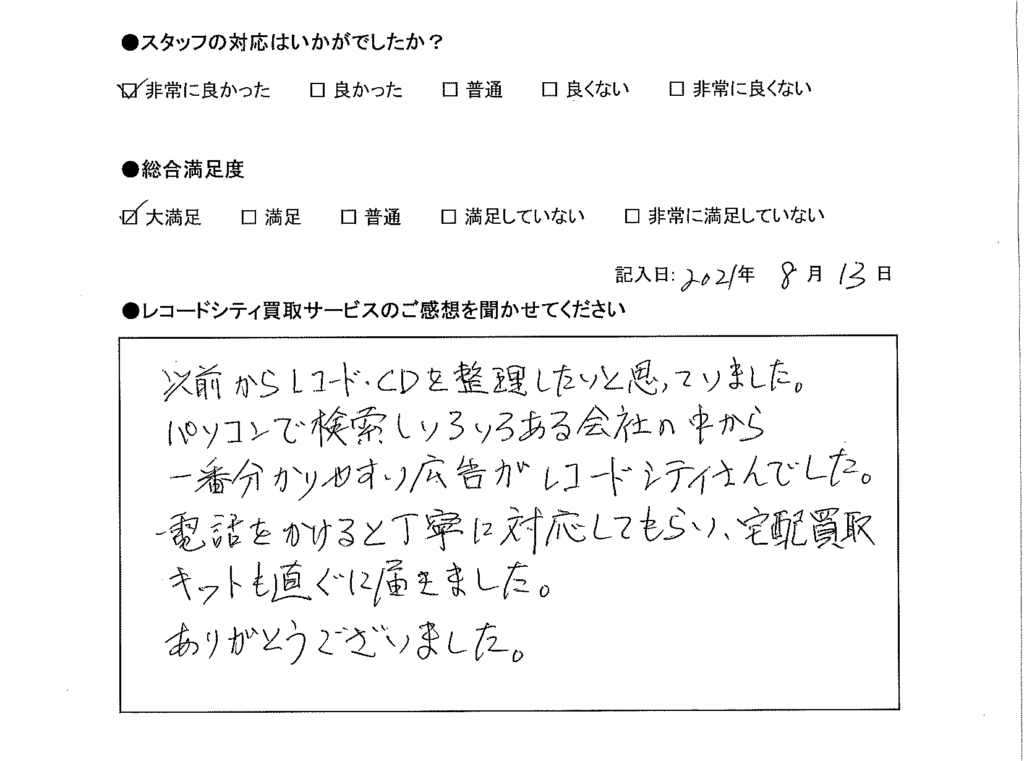 ●スタッフの対応はいかがでしたか？
☑ 非常に良かった □ 良かった □ 普通 □ 良くない □ 非常に良くない
●総合満足度
☑ 大満足 □ 満足 □ 普通 □ 満足していない □ 非常に満足していない
記入日: 2021年 8月 13日
●レコードシティ買取サービスのご感想を聞かせてください
以前からレコード・CDを整理したいと思っていました。
パソコンで検索しいろいろある会社の中から
一番分かりやすい広告がレコードシティさんでした。
電話をかけると丁寧に対応してもらい、宅配買取
キットも直ぐに届きました。
ありがとうございました。